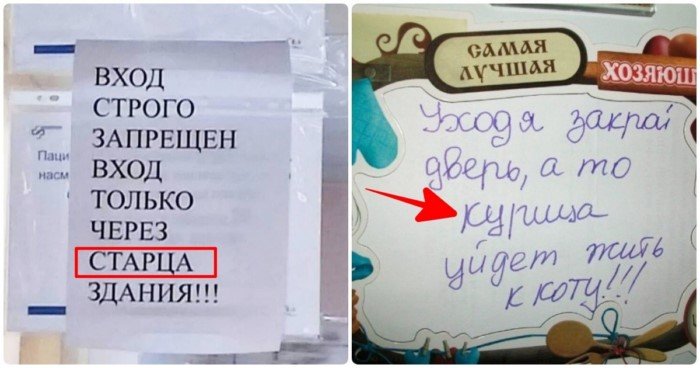 Паци
насм
ВХОД
СТРОГО
ЗАПРЕЩЕН
ВХОД
ТОЛЬКО
ЧЕРЕЗ
СТАРЦА
ЗДАНИЯ!!!
САМАЯ
ЛУЧШАЯ
ХОЗЯЮШ
Уходя закрай
дверь, а то
курица
уйдет жить
к коту!!!